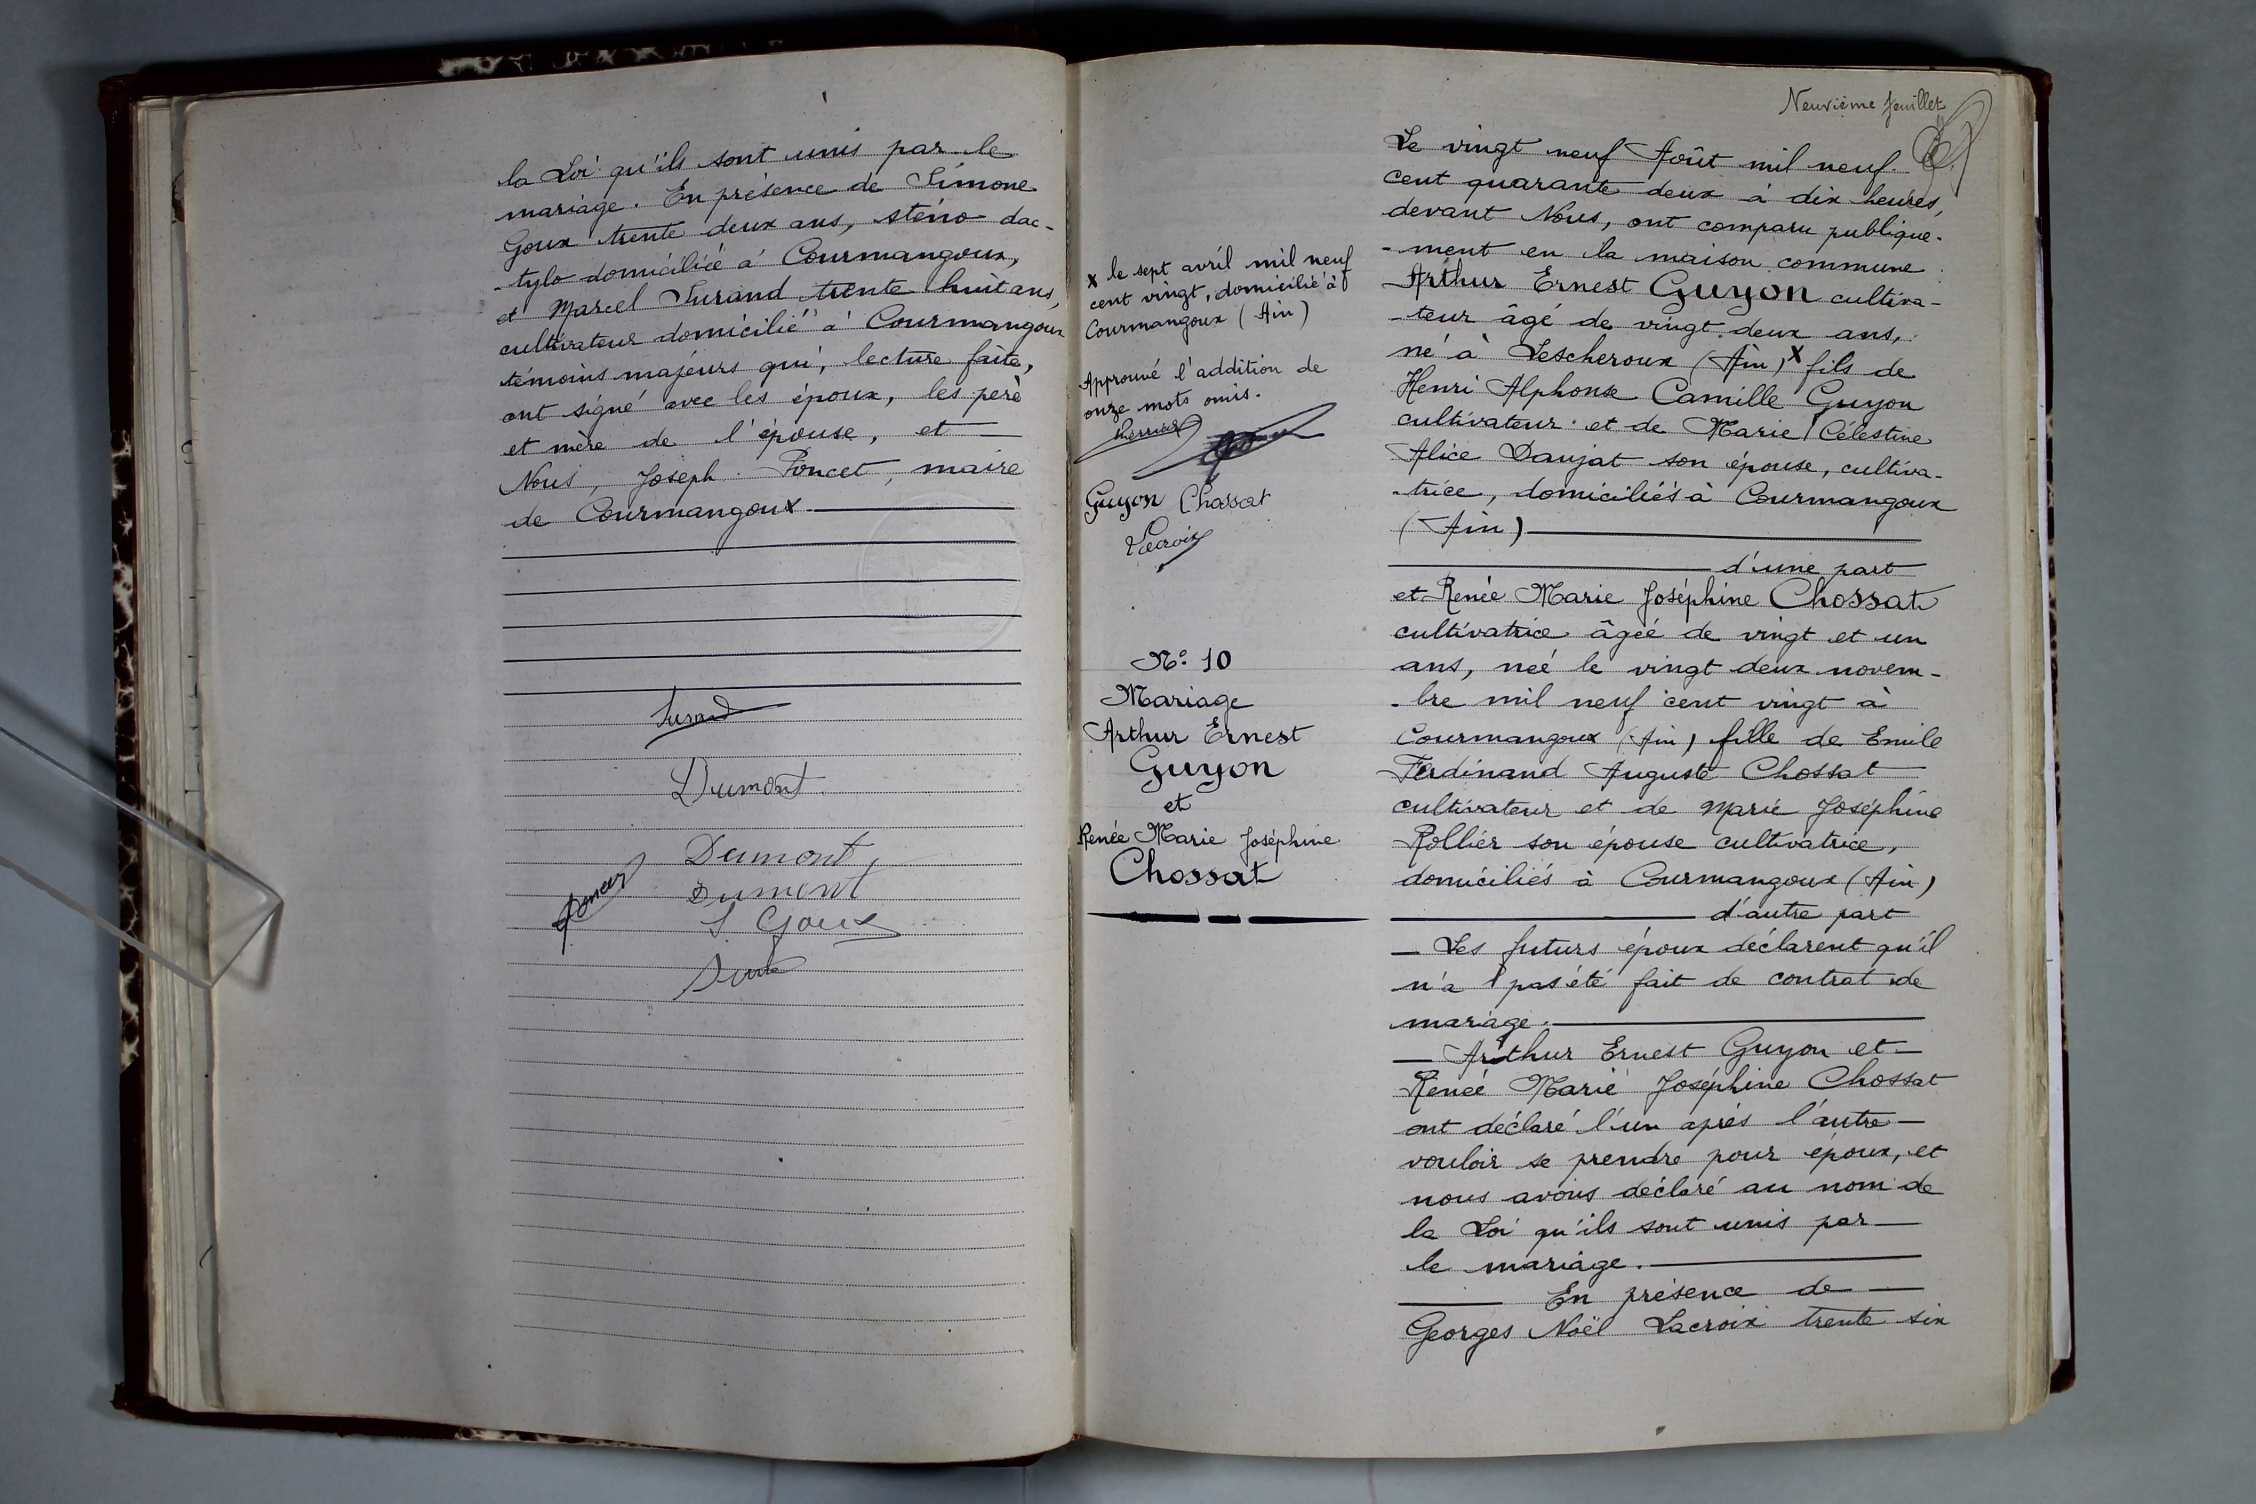 la Loi qu'ils sont unis par le
mariage. En présence de Simone
Goux trente deux ans, sténo dac-
-tylo domiciliée à Courmangoux,
et Marcel Surand trente huit ans,
cultivateur domicilié à Courmangoux
témoins majeurs qui, lecture faite,
ont signé avec les époux, les père
et mère de l'épouse, et
Nous, Joseph Poncet, maire
de Courmangoux
Dumont
Dumont
Dumont
Poncet
S Goux
Neuvième feuillet
x le sept avril mil neuf
cent vingt, domicilié à
Courmangoux (Ain)
Approuvé l'addition de
onze mots omis.
Guyon Chossat
Lacroix
No 10
Mariage
Arthur Ernest
Guyon
et
Renée Marie Joséphine
Chossat
Le vingt neuf Août mil neuf
cent quarante deux à dix heures,
devant Nous, ont comparu publique-
-ment en la maison commune
Arthur Ernest Guyon cultiva-
-teur âgé de vingt deux ans,
né à Lescheroux (Ain) x fils de
Henri Alphonse Camille Guyon
cultivateur et de Marie Célestine
Alice Daujat son épouse, cultiva-
-trice, domiciliés à Courmangoux
(Ain)
d'une part
et Renée Marie Joséphine Chossat
cultivatrice âgée de vingt et un
ans, née le vingt deux novem-
-bre mil neuf cent vingt à
Courmangoux (Ain) fille de Emile
Ferdinand Auguste Chossat
cultivateur et de Marie Joséphine
Rollier son épouse cultivatrice,
domiciliés à Courmangoux (Ain)
d'autre part
Les futurs époux déclarent qu'il
n'a pas été fait de contrat de
mariage.
Arthur Ernest Guyon et
Renée Marie Joséphine Chossat
ont déclaré l'un après l'autre
vouloir se prendre pour époux, et
nous avons déclaré au nom de
la Loi qu'ils sont unis par
le mariage.
En présence de
Georges Noël Lacroix trente six